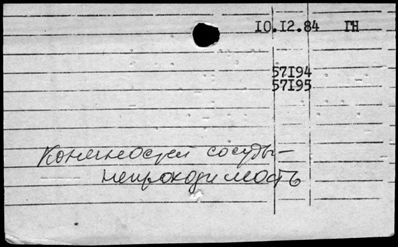 10.12.84 ГН
57I94
57I95
Конечностей сосуды –
непроходимость